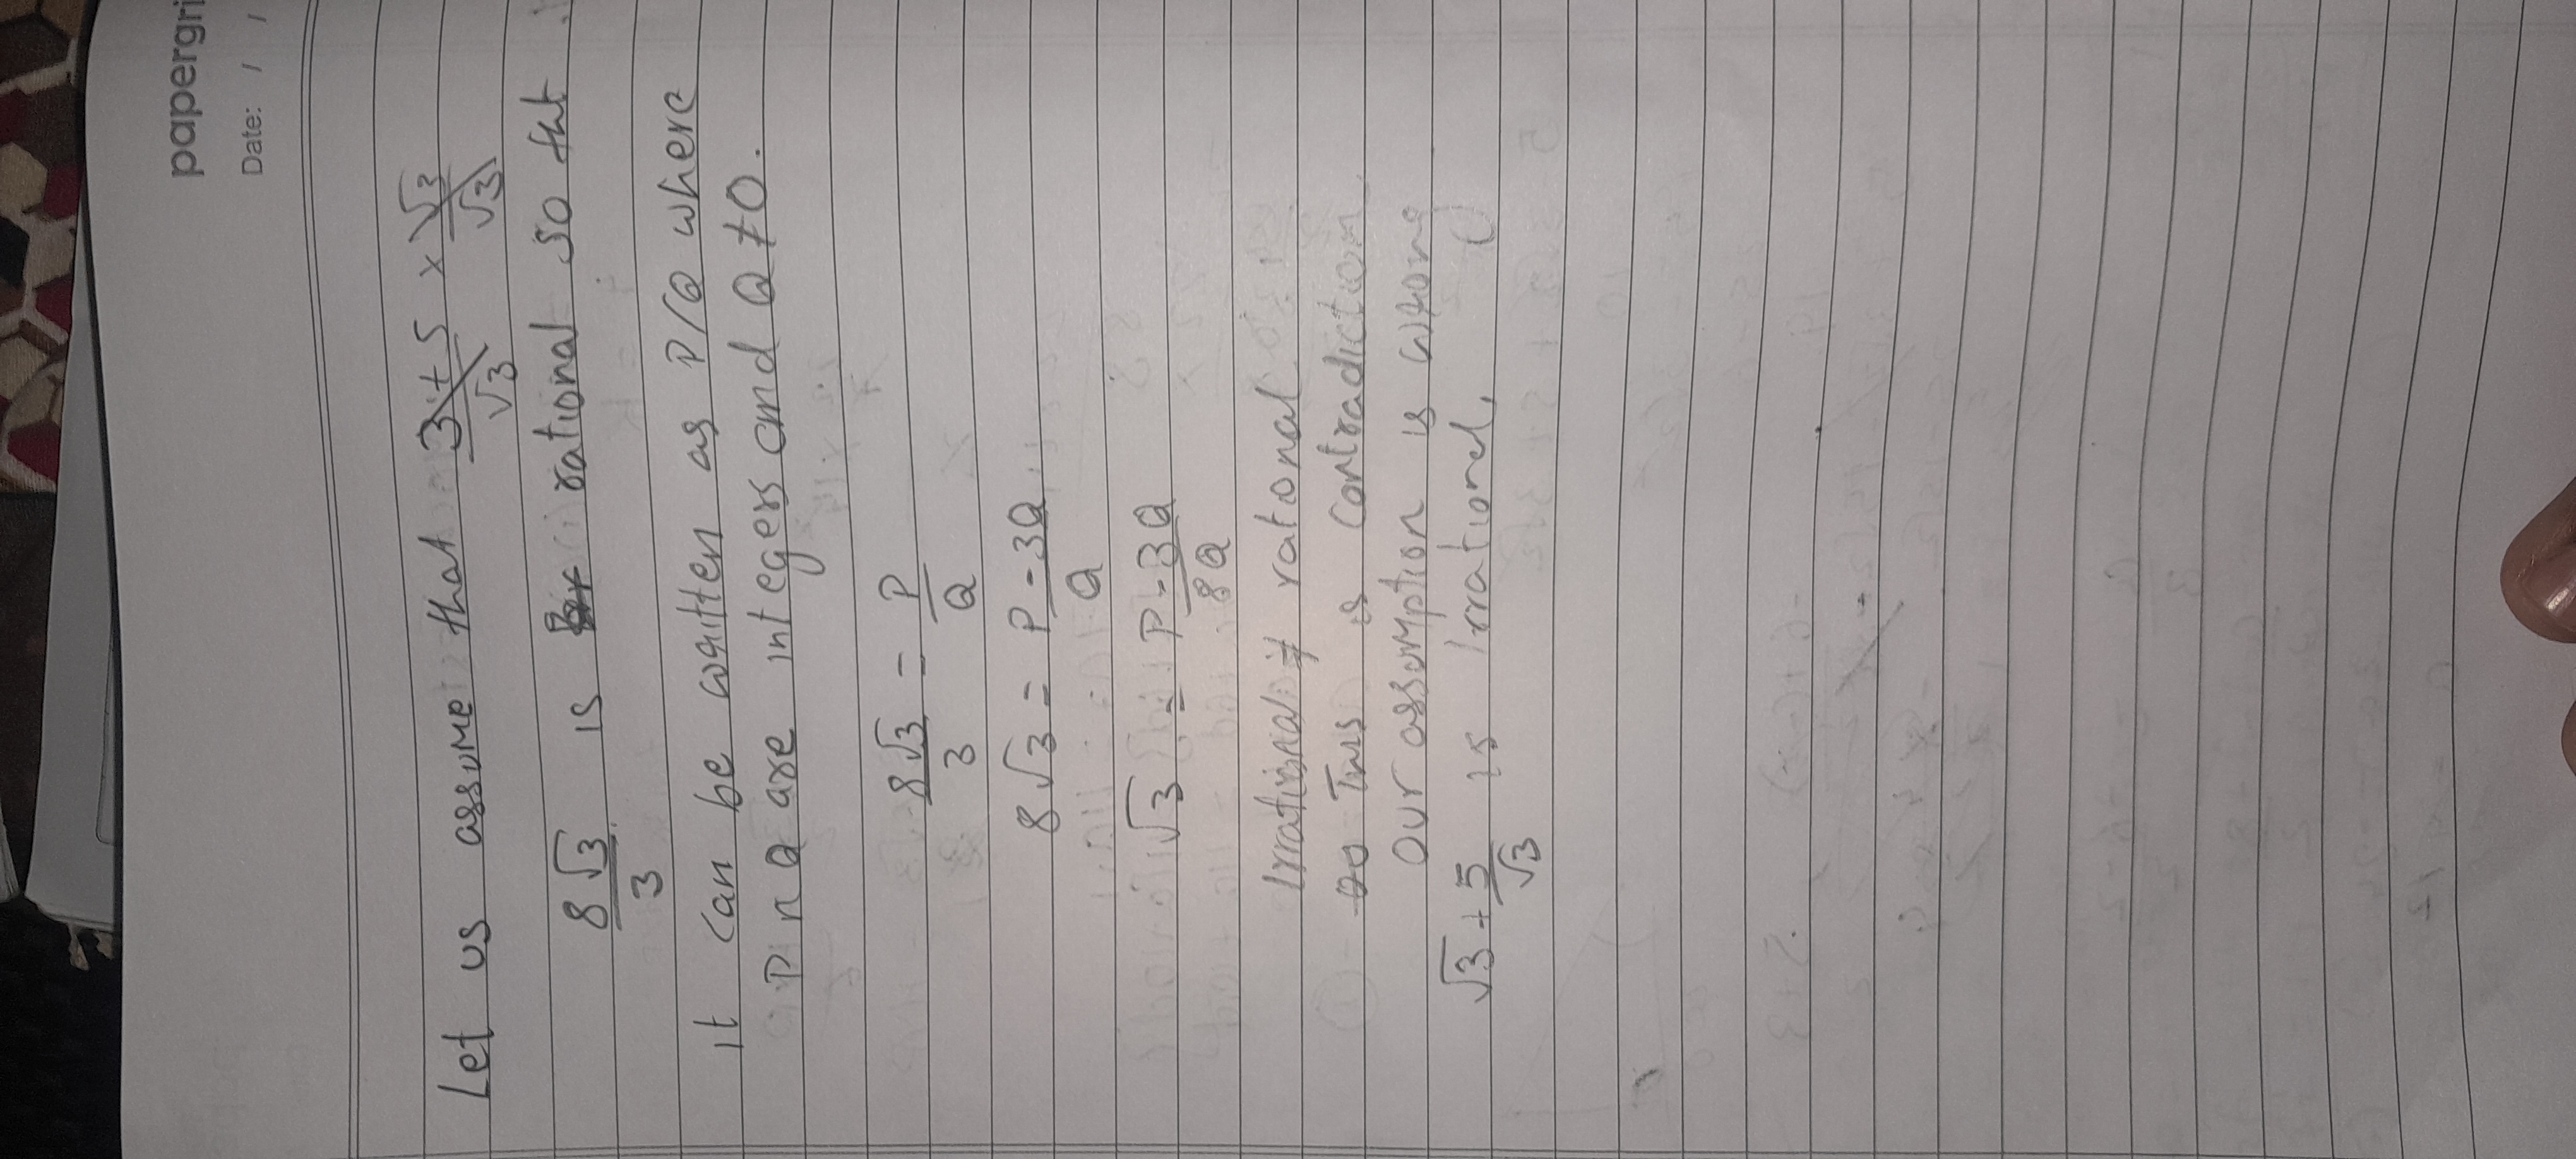 papergri
Date: / /
Let us assume that 3+5/√3 × √3/√3
8√3/3 is rational so tht
it can be written as P/Q where
P n Q are integers and Q ≠ 0.
8√3/3 = P/Q
8√3 = P-3Q/Q
√3 = P-3Q/8Q
Irrational ≠ rational
This is Contradiction
Our assumption is wrong
√3+5/√3 is Irrational,